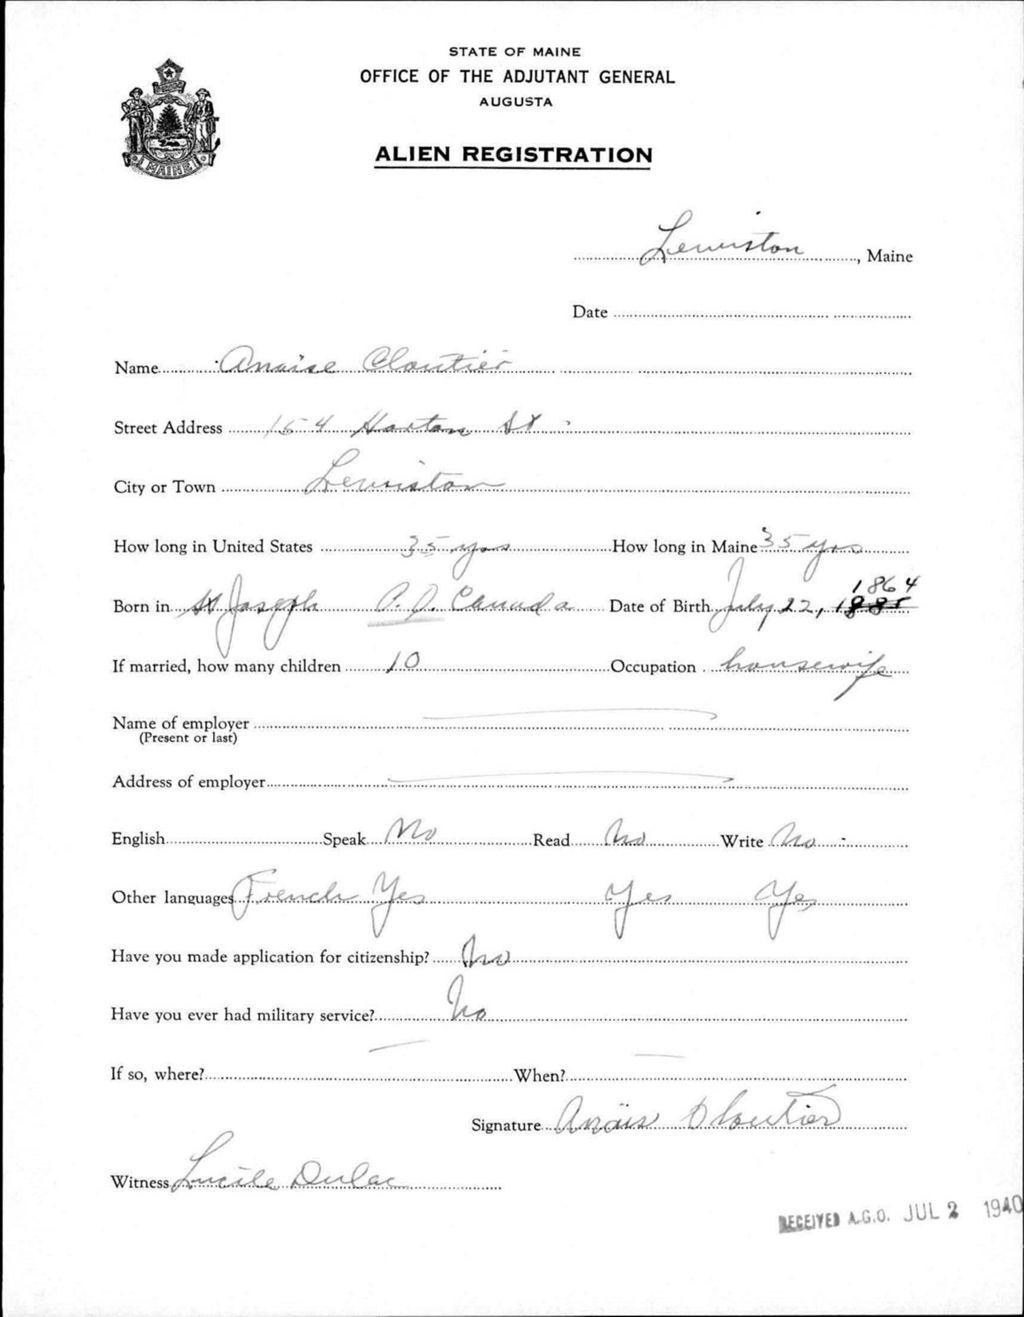 STATE OF MAINE
OFFICE OF THE ADJUTANT GENERAL
AUGUSTA
MAINE
ALIEN REGISTRATION
Lewiston, Maine
Date
Name Anaise Cloutier
Street Address 154 Horton St
City or Town Lewiston
How long in United States 35 yrs How long in Maine 35 yrs
1864
Born in St Joseph P.Q. Canada Date of Birth July 22, 1885
If married, how many children 10 Occupation housewife
Name of employer
(Present or last)
Address of employer
English Speak No Read No Write No
Other languages French Yes Yes Yes
Have you made application for citizenship? No
Have you ever had military service? No
If so, where? When?
Signature Anäis Cloutier
Witness Lucile Dulac
RECEIVED A.G.O. JUL 2 1940